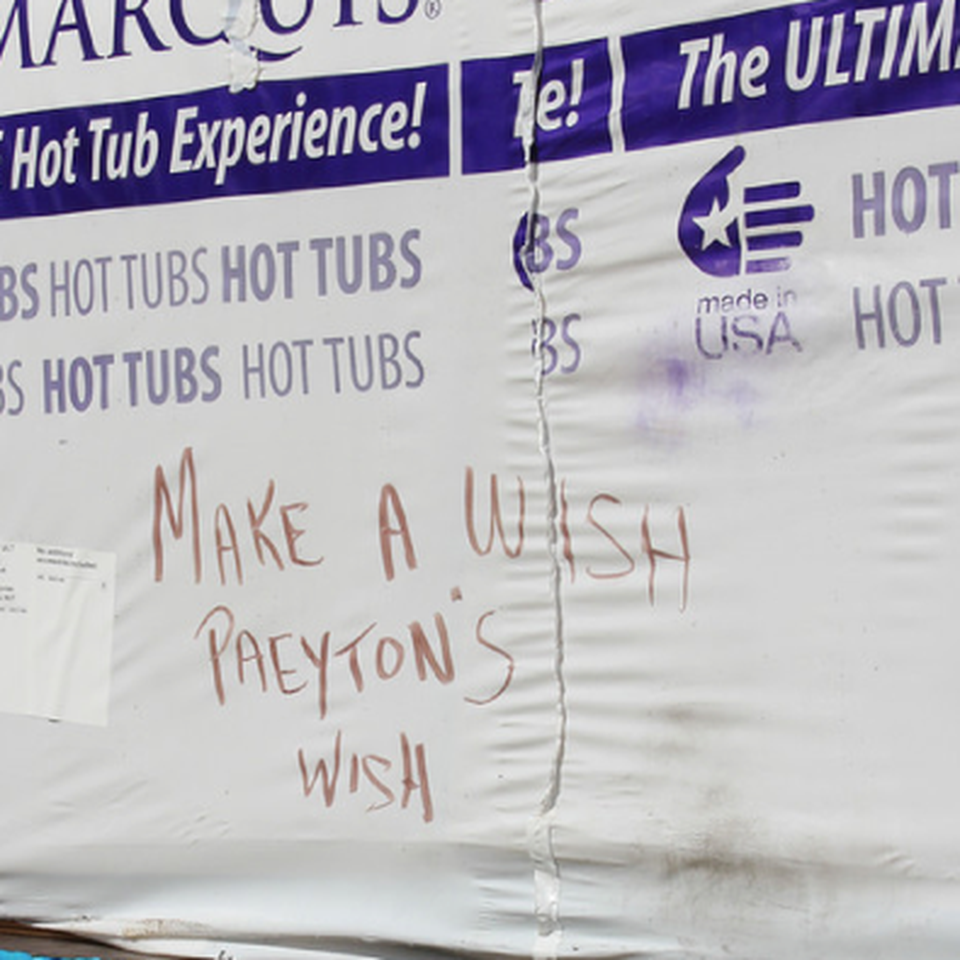 MARQUIS®
Hot Tub Experience!
Te!
The ULTIM
BS HOT TUBS HOT TUBS
BS
HOT
made in
USA
BS HOT TUBS HOT TUBS
BS
HOT
MAKE A WISH
PAEYTON'S
WISH